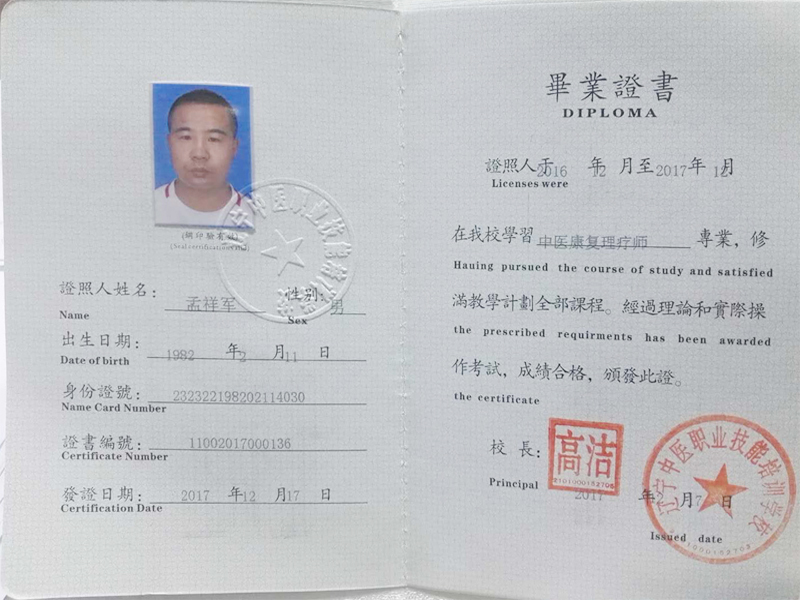 (鋼印驗有效)
(Seal certification and)
辽宁中医职业技能培训学校
證照人姓名: 孟祥军 性别: 男
Name Sex
出生日期: 1982 年 2 月 11 日
Date of birth
身份證號: 232322198202114030
Name Card Number
證書編號: 11002017000136
Certificate Number
發證日期: 2017 年 12 月 17 日
Certification Date
畢業證書
DIPLOMA
證照人于 2016 年 12 月至 2017 年 12 月
Licenses were
在我校學習 中医康复理疗师 專業，修
Hauing pursued the course of study and satisfied
滿教學計劃全部課程。經過理論和實際操
the prescribed requirments has been awarded
作考試，成績合格，頒發此證。
the certificate
校長: 高洁
Principal
2101000152708
2017 年 月 日
Issued date
辽宁中医职业技能培训学校